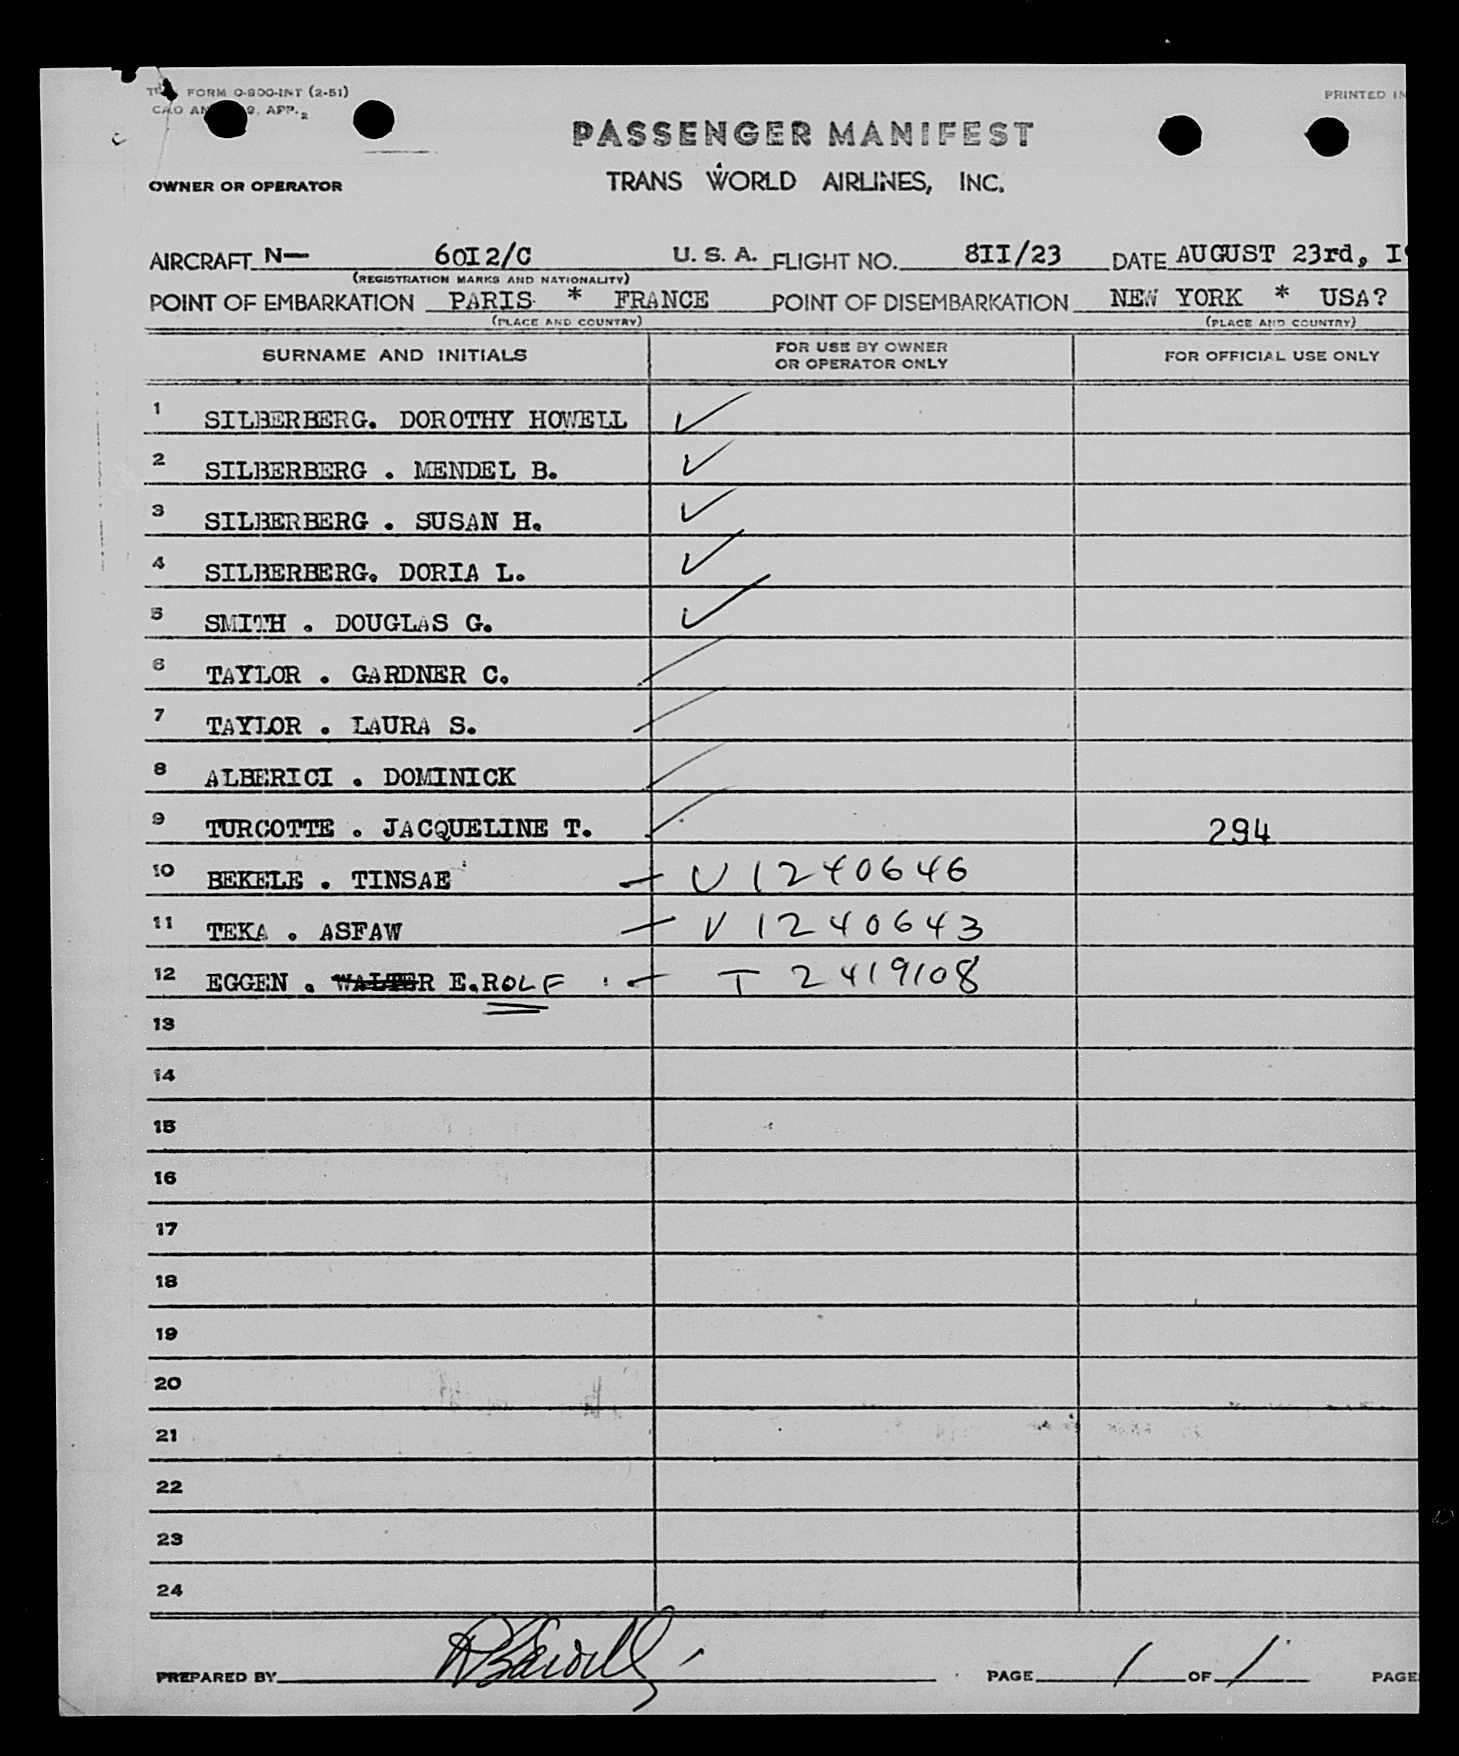 FORM O-800-INT (2-51)
CAO AN 9. APP. 2
PRINTED IN
PASSENGER MANIFEST
OWNER OR OPERATOR
TRANS WORLD AIRLINES, INC.
AIRCRAFT N— 6OI2/C U. S. A. FLIGHT NO. 8II/23 DATE AUGUST 23rd, I
(REGISTRATION MARKS AND NATIONALITY)
POINT OF EMBARKATION PARIS * FRANCE POINT OF DISEMBARKATION NEW YORK * USA?
(PLACE AND COUNTRY) (PLACE AND COUNTRY)
SURNAME AND INITIALS FOR USE BY OWNER OR OPERATOR ONLY FOR OFFICIAL USE ONLY
1 SILBERBERG. DOROTHY HOWELL ✓
2 SILBERBERG . MENDEL B. ✓
3 SILBERBERG . SUSAN H. ✓
4 SILBERBERG. DORIA L. ✓
5 SMITH . DOUGLAS G. ✓
6 TAYLOR . GARDNER C.
7 TAYLOR . LAURA S.
8 ALBERICI . DOMINICK
9 TURCOTTE . JACQUELINE T. 294
10 BEKELE . TINSAE — V 1240646
11 TEKA . ASFAW — V 1240643
12 EGGEN . WALTER E. ROLF — T 2419108
13
14
15
16
17
18
19
20
21
22
23
24
PREPARED BY PAGE 1 OF 1 PAGE